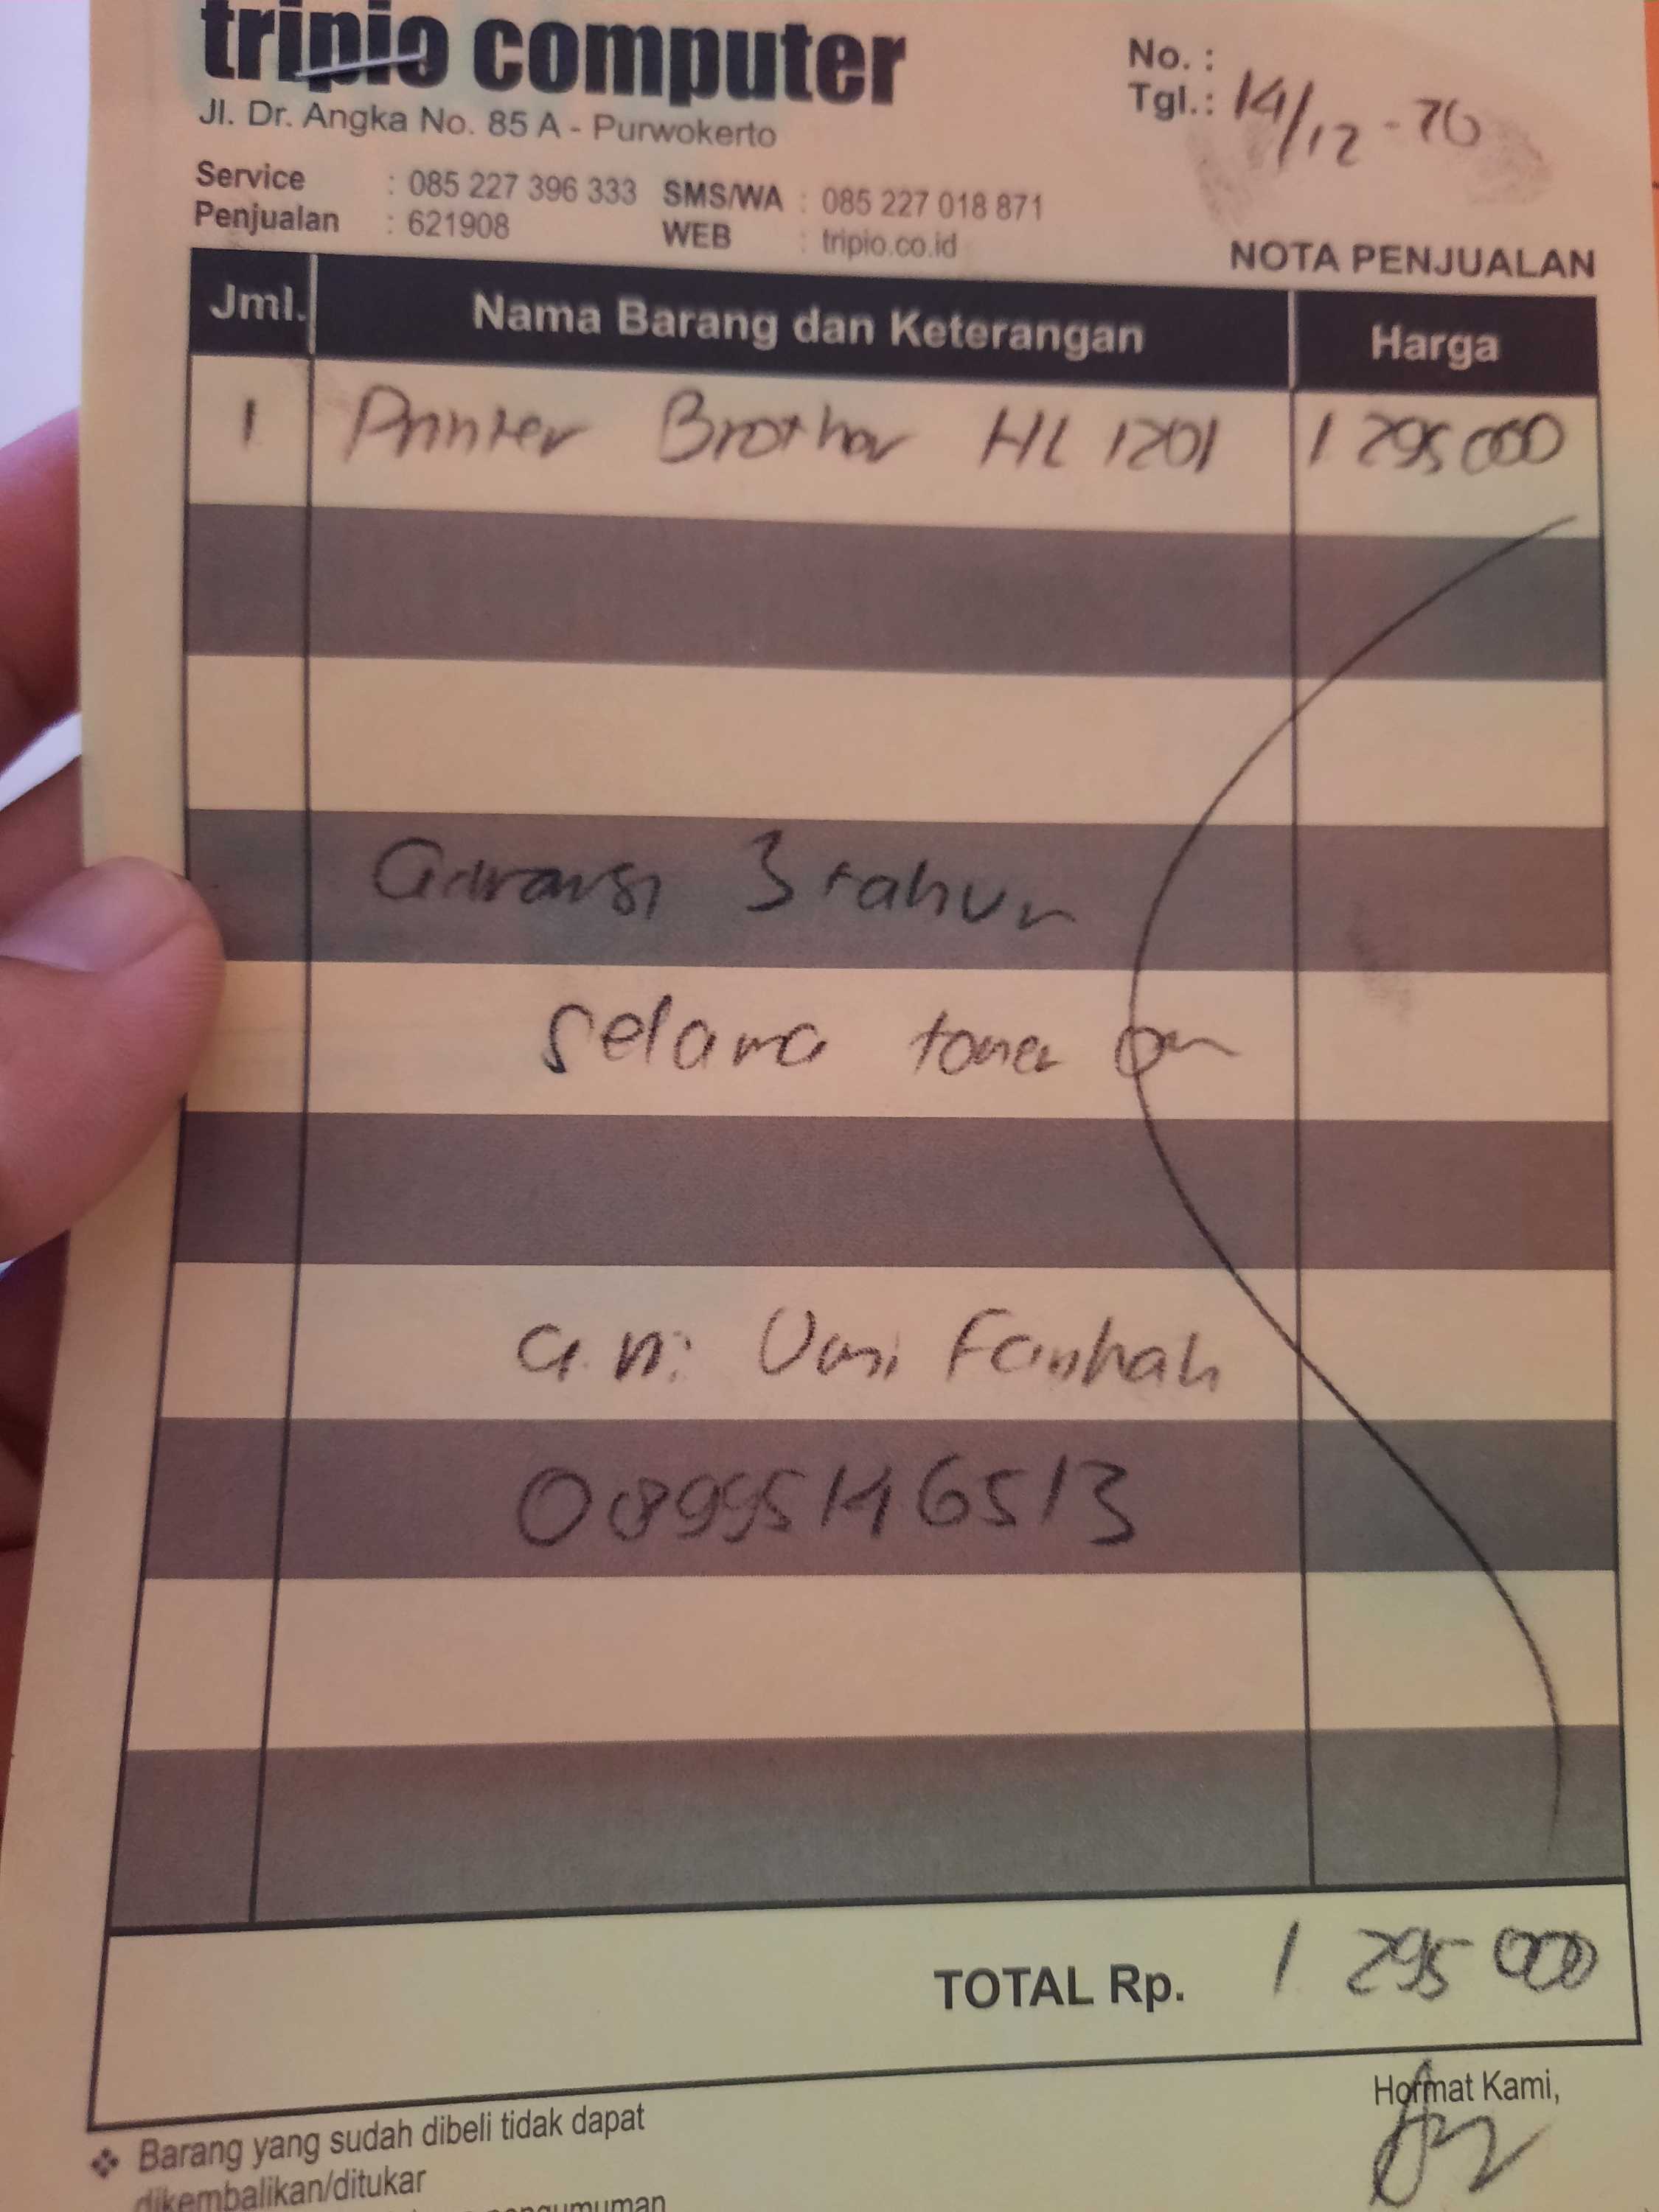 tripio computer
Jl. Dr. Angka No. 85 A - Purwokerto
Service : 085 227 396 333 SMS/WA : 085 227 018 871
Penjualan : 621908 WEB : tripio.co.id
No. :
Tgl.: 14/12 - 20
NOTA PENJUALAN
Jml. Nama Barang dan Keterangan Harga
1 Printer Brother HL 1201 1 295 000
Garansi 3 tahun
selama toner ori
a.n: Umi Farihah
08995146513
TOTAL Rp. 1 295 000
Hormat Kami,
❖ Barang yang sudah dibeli tidak dapat
dikembalikan/ditukar
pengumuman